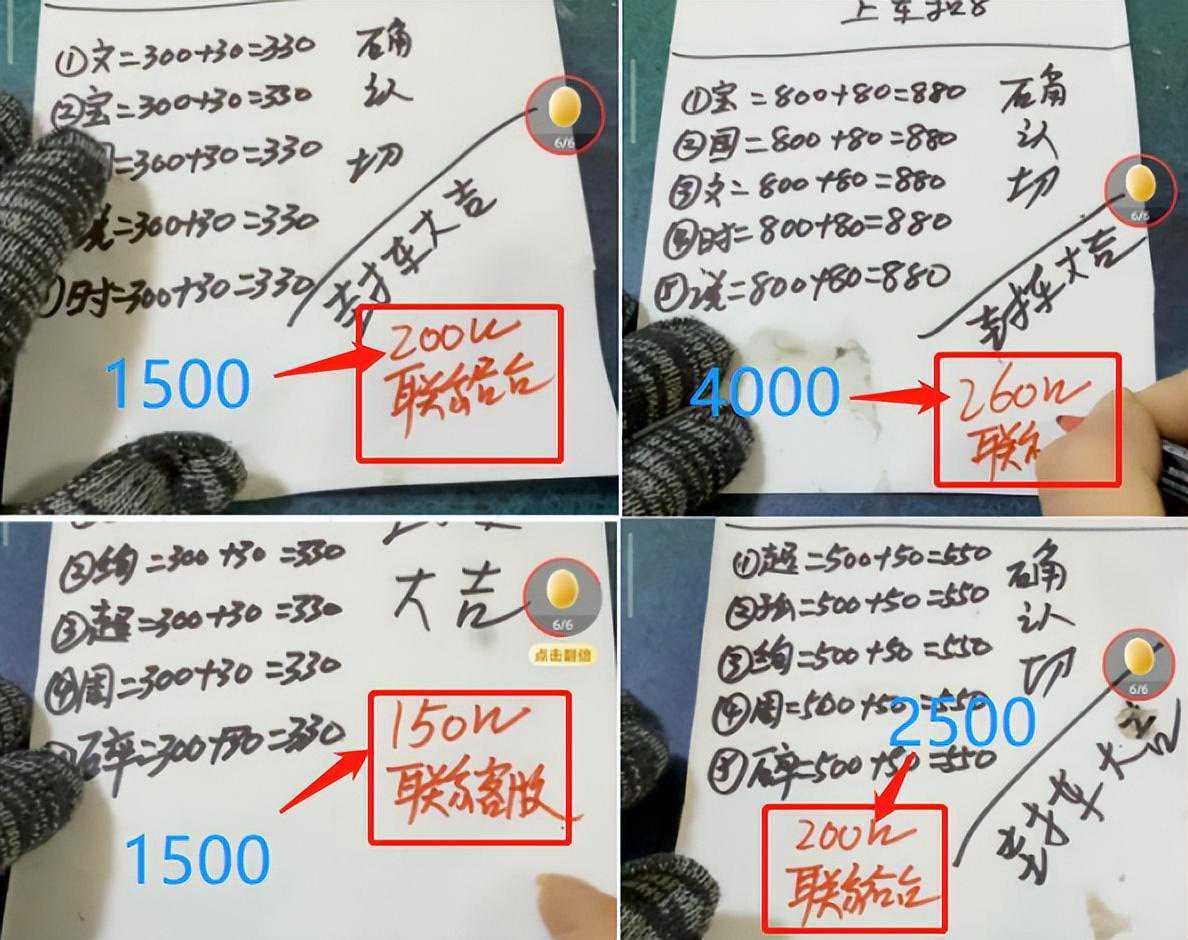 ①文=300+30=330 确
②宝=300+30=330 认
=300+30=330 切
说=300+30=330
时=300+30=330
封车大吉
6/6
1500
200以
联系给台
上车扣8
①宝=800+80=880 确
②国=800+80=880 认
③文=800+80=880 切
④时=800+80=880
⑤说=800+80=880
封车大吉
6/6
4000
260以
联
②绚=300+30=330
③超=300+30=330
④周=300+30=330
石率=300+30=330
大吉
6/6
点击翻倍
150以
联系客服
1500
①超=500+50=550 确
②孙=500+50=550 认
③绚=500+50=550 切
④周=500+50=550
⑤石率=500+50=550
封车大吉
6/6
2500
200以
联系给台